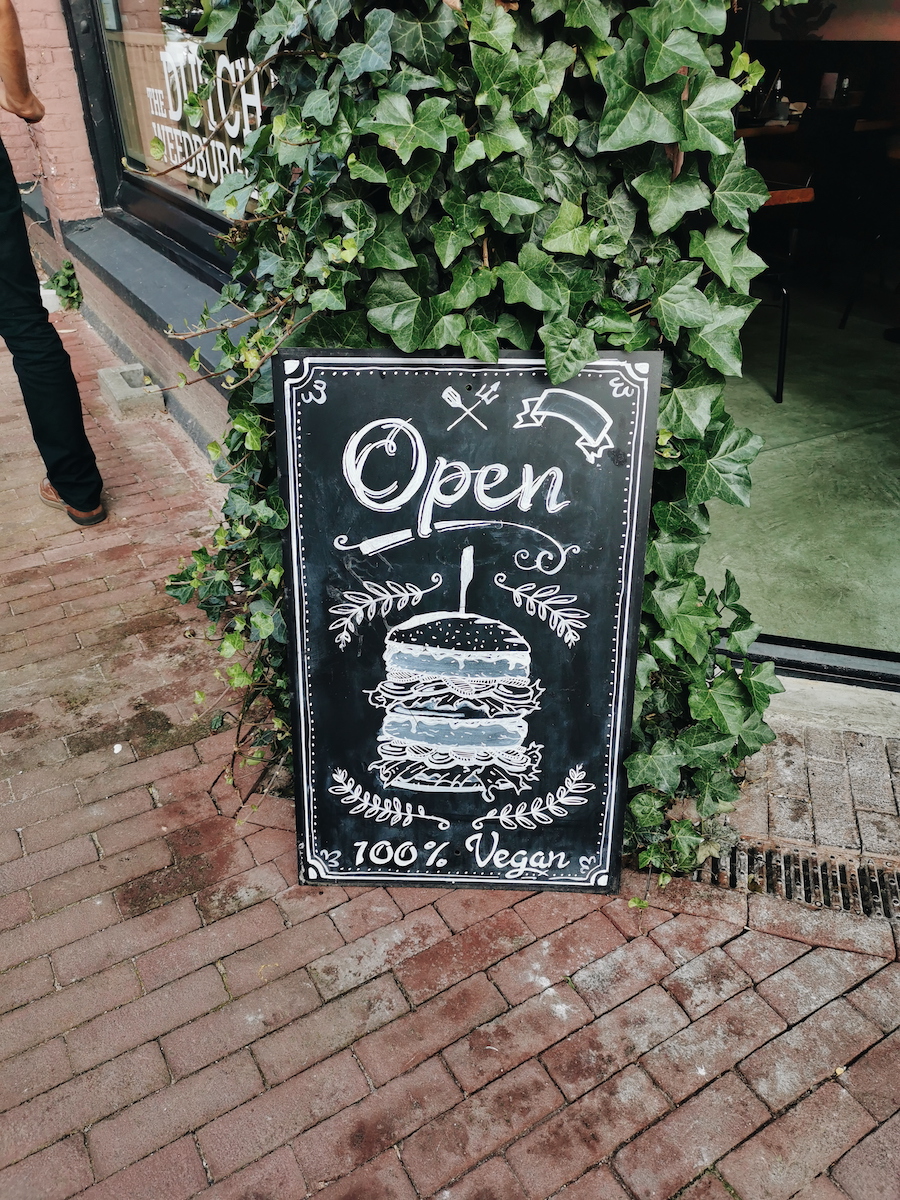 THE DUTCH
WEEDBURG
Open
100% Vegan